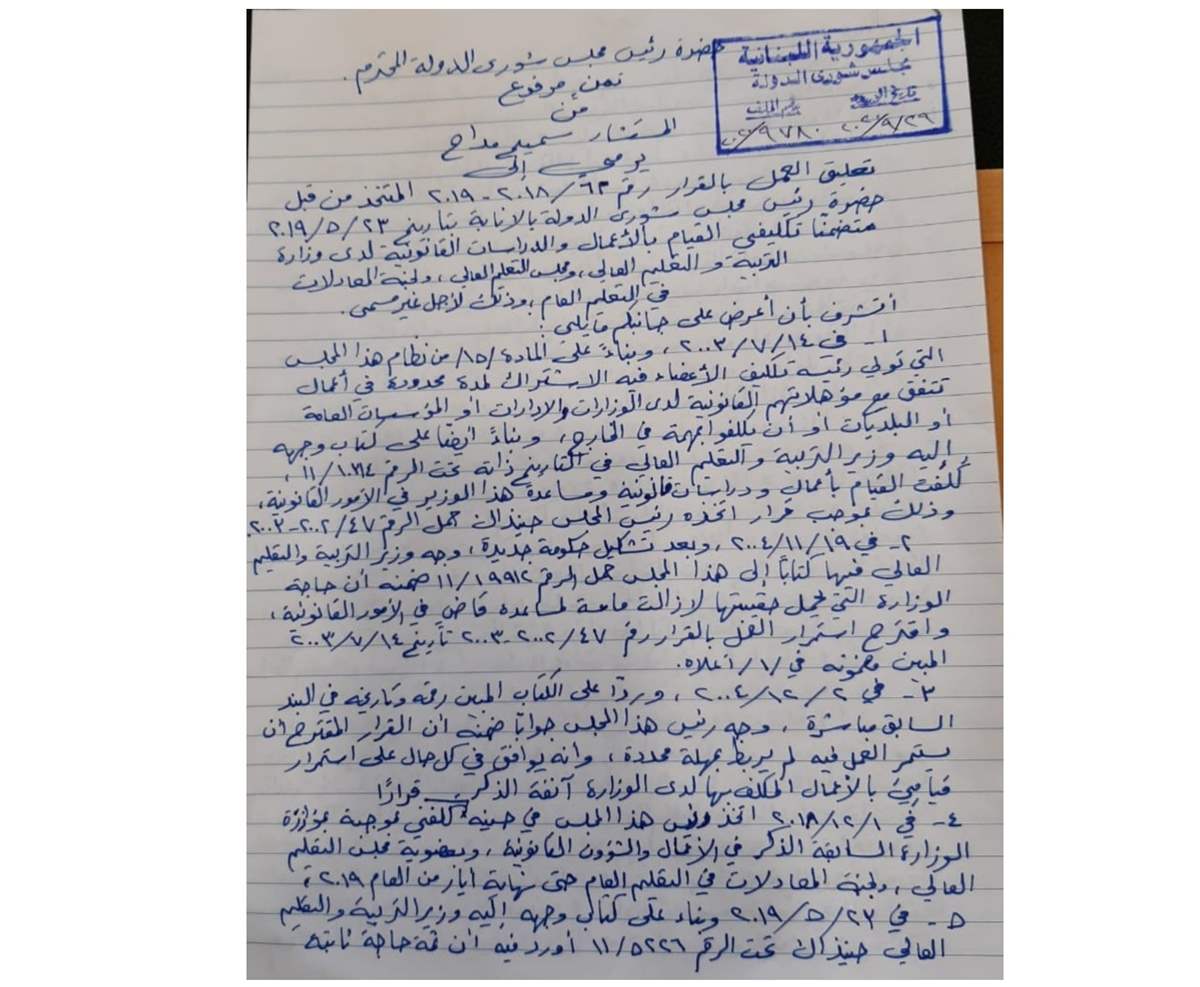 الجمهورية اللبنانية
مجلس شورى الدولة
تاريخ الورود رقم الملف
٢٠٢٠/٩/٢٩ ٢٠٢٠/٩٧٨٠
حضرة رئيس مجلس شورى الدولة المحترم.
نص مرفوع
من
المستشار سميح مداح
يرمي إلى
تعليق العمل بالقرار رقم ٦٣/ ٢٠١٨ - ٢٠١٩ المتخذ من قبل
حضرة رئيس مجلس شورى الدولة بالانابة بتاريخ ٢٠١٩/٥/٢٣
متضمنًا تكليفي القيام بالأعمال والدراسات القانونية لدى وزارة
التربية و التعليم العالي، ومجلس التعليم العالي، ولجنة المعادلات
في التعليم العام، وذلك لأجل غير مسمى.
أتشرف بأن أعرض على جانبكم ما يلي:
١- في ٢٠٠٣/٧/١٤، وبناءً على المادة /١٥/ من نظام هذا المجلس
التي تولي رئيسه تكليف الأعضاء فيه الاشتراك لمدة محدودة في أعمال
تتفق مع مؤهلاتهم القانونية لدى الوزارات والإدارات أو المؤسسات العامة
أو البلديات أو أن يكلفوا بمهمة في الخارج، وبناءً أيضا على كتاب وجهه
إليه وزير التربية والتعليم العالي في التاريخ ذاته تحت الرقم
كُلّفت القيام بأعمال ودراسات قانونية ومساعدة هذا الوزير في الامور القانونية،
وذلك بموجب قرار اتخذه رئيس المجلس حينذاك حمل الرقم ٤٧/ ٢٠٠٢-٢٠٠٣.
٢- في ٢٠٠٤/١١/١٩، وبعد تشكيل حكومة جديدة، وجه وزير التربية والتعليم
العالي فيها كتابًا إلى هذا المجلس حمل الرقم ١١/١٩٩١٢ ضمنه أن حاجة
الوزارة التي يحمل حقيبتها لا زالت ماسة لمساعدة قاضٍ في الأمور القانونية،
واقترح استمرار العمل بالقرار رقم ٤٧/ ٢٠٠٢-٢٠٠٣ تاريخ ٢٠٠٣/٧/١٤
المبين مضمونه في /١/ أعلاه.
٣- في ٢٠٠٤/١٢/٢، وردًا على الكتاب المبين رقمه وتاريخه في البند
السابق مباشرة، وجه رئيس هذا المجلس جوابًا ضمنه أن القرار المقترح أن
يستمر العمل فيه لم يربط بمهلة محددة، وأنه يوافق في كل حال على استمرار
قيامي بالأعمال المكلف بها لدى الوزارة آنفة الذكر.
٤- في ٢٠١٨/١٢/١ اتخذ رئيس هذا المجلس في حينه قرارًا كلفني بموجبه بمؤازرة
الوزارة السابقة الذكر في الأعمال والشؤون القانونية، وبعضوية مجلس التعليم
العالي، ولجنة المعادلات في التعليم العام حتى نهاية أيار من العام ٢٠١٩،
٥- في ٢٠١٩/٥/٢٣ وبناء على كتاب وجهه إليه وزير التربية والتعليم
العالي حينذاك تحت الرقم ١١/٥٢٢٦ أورد فيه أن ثمة حاجة ثابتة